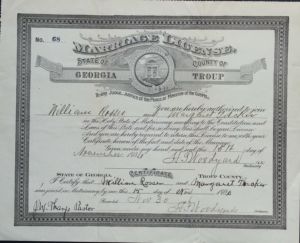 No. 68
MARRIAGE LICENSE.
STATE OF
COUNTY OF
GEORGIA
TROUP
To any Judge, Justice of the Peace or Minister of the Gospel:
William
You are hereby authorized to join
and Margaret
in the Holy State of Matrimony according to the Constitution and
Laws of this State and for so doing this shall be your License.
And you are hereby required to return this License to me with your
Certificate hereon of the fact and date of the Marriage.
Given under my hand and seal this
November
CERTIFICATE
STATE OF GEORGIA,
TROUP COUNTY.
I Certify that William and Margaret
were joined in Matrimony by me this 15 day of Nov
Recorded Nov 30
Pastor